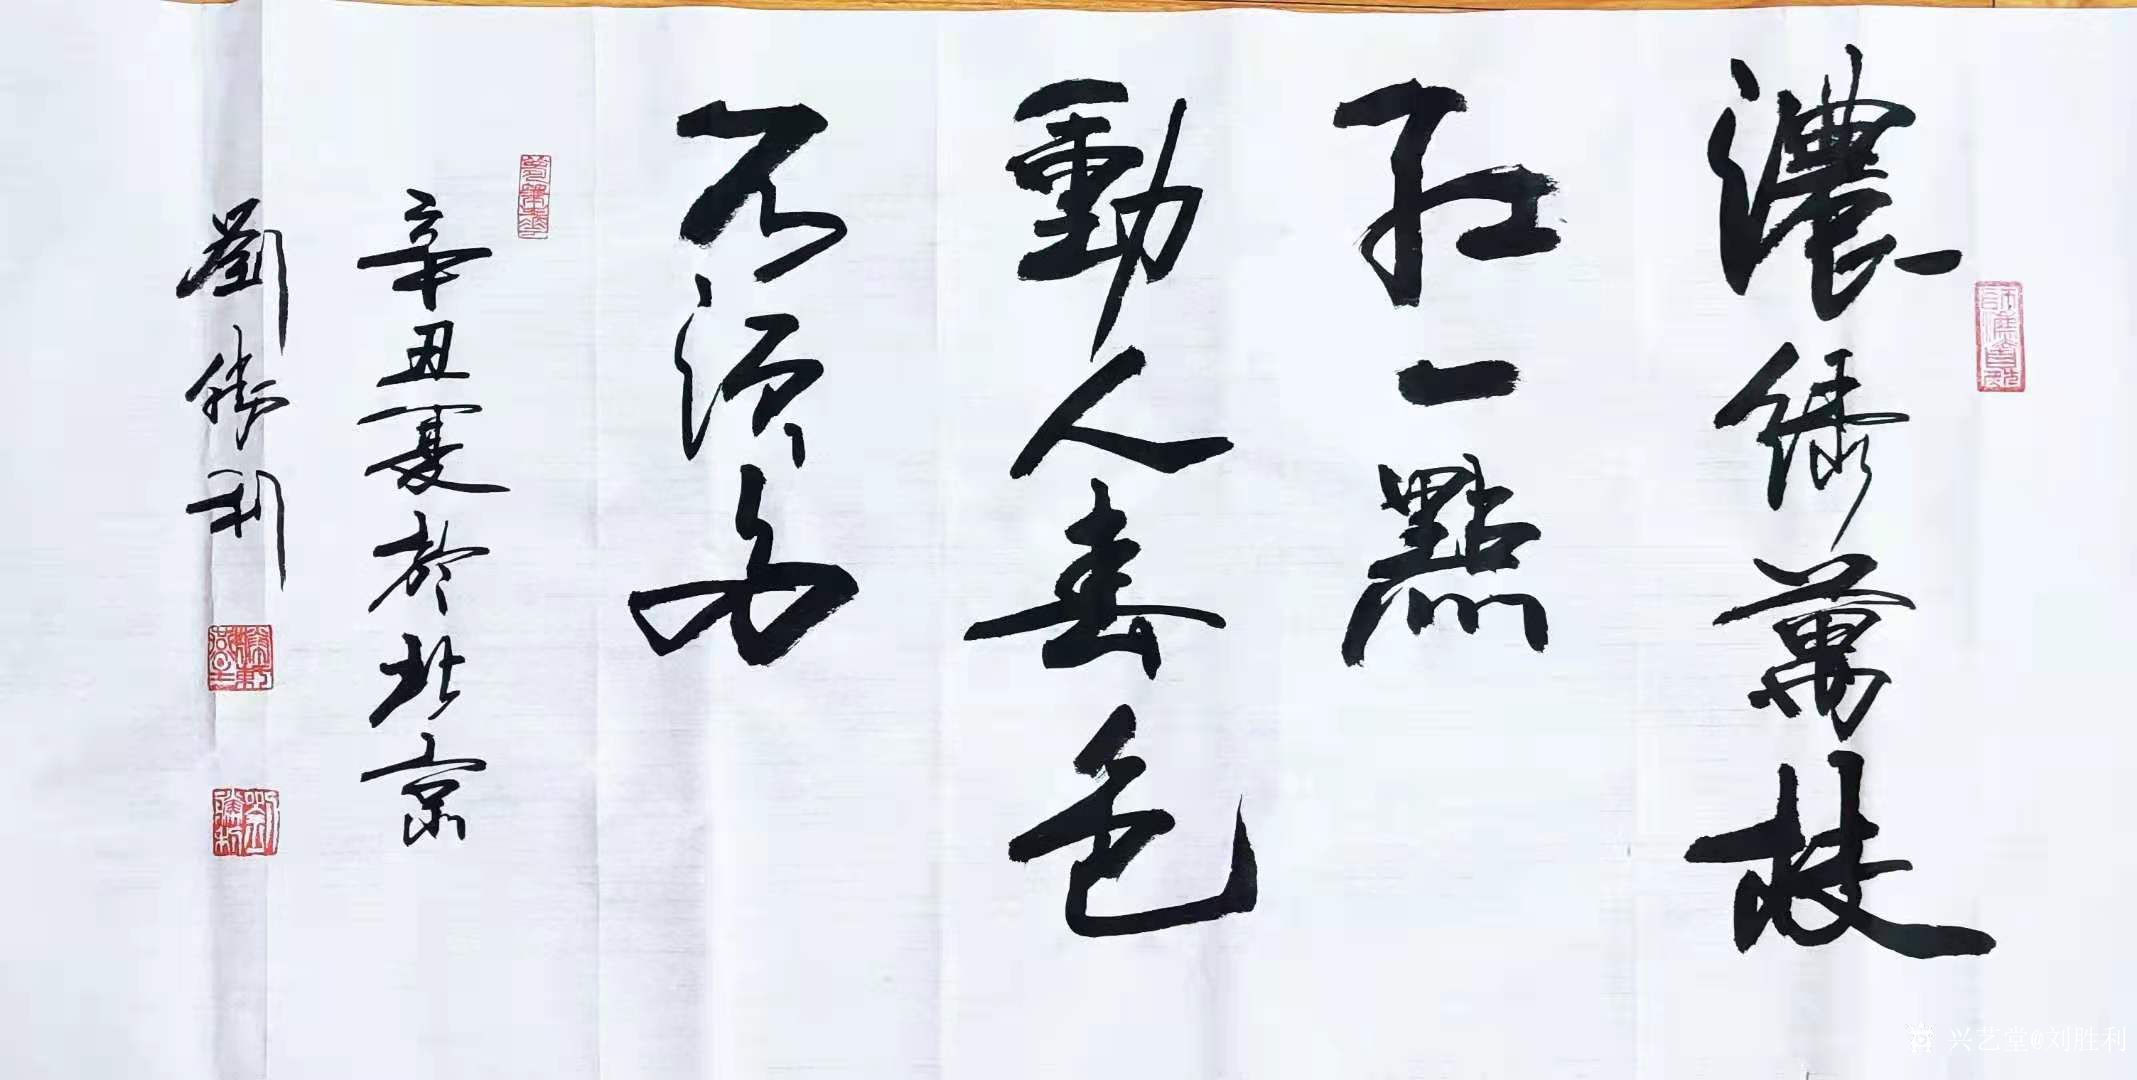 濃緑萬枝
紅一點
動人春色
不須多
辛丑夏於北京
劉勝利
兴艺堂@刘胜利